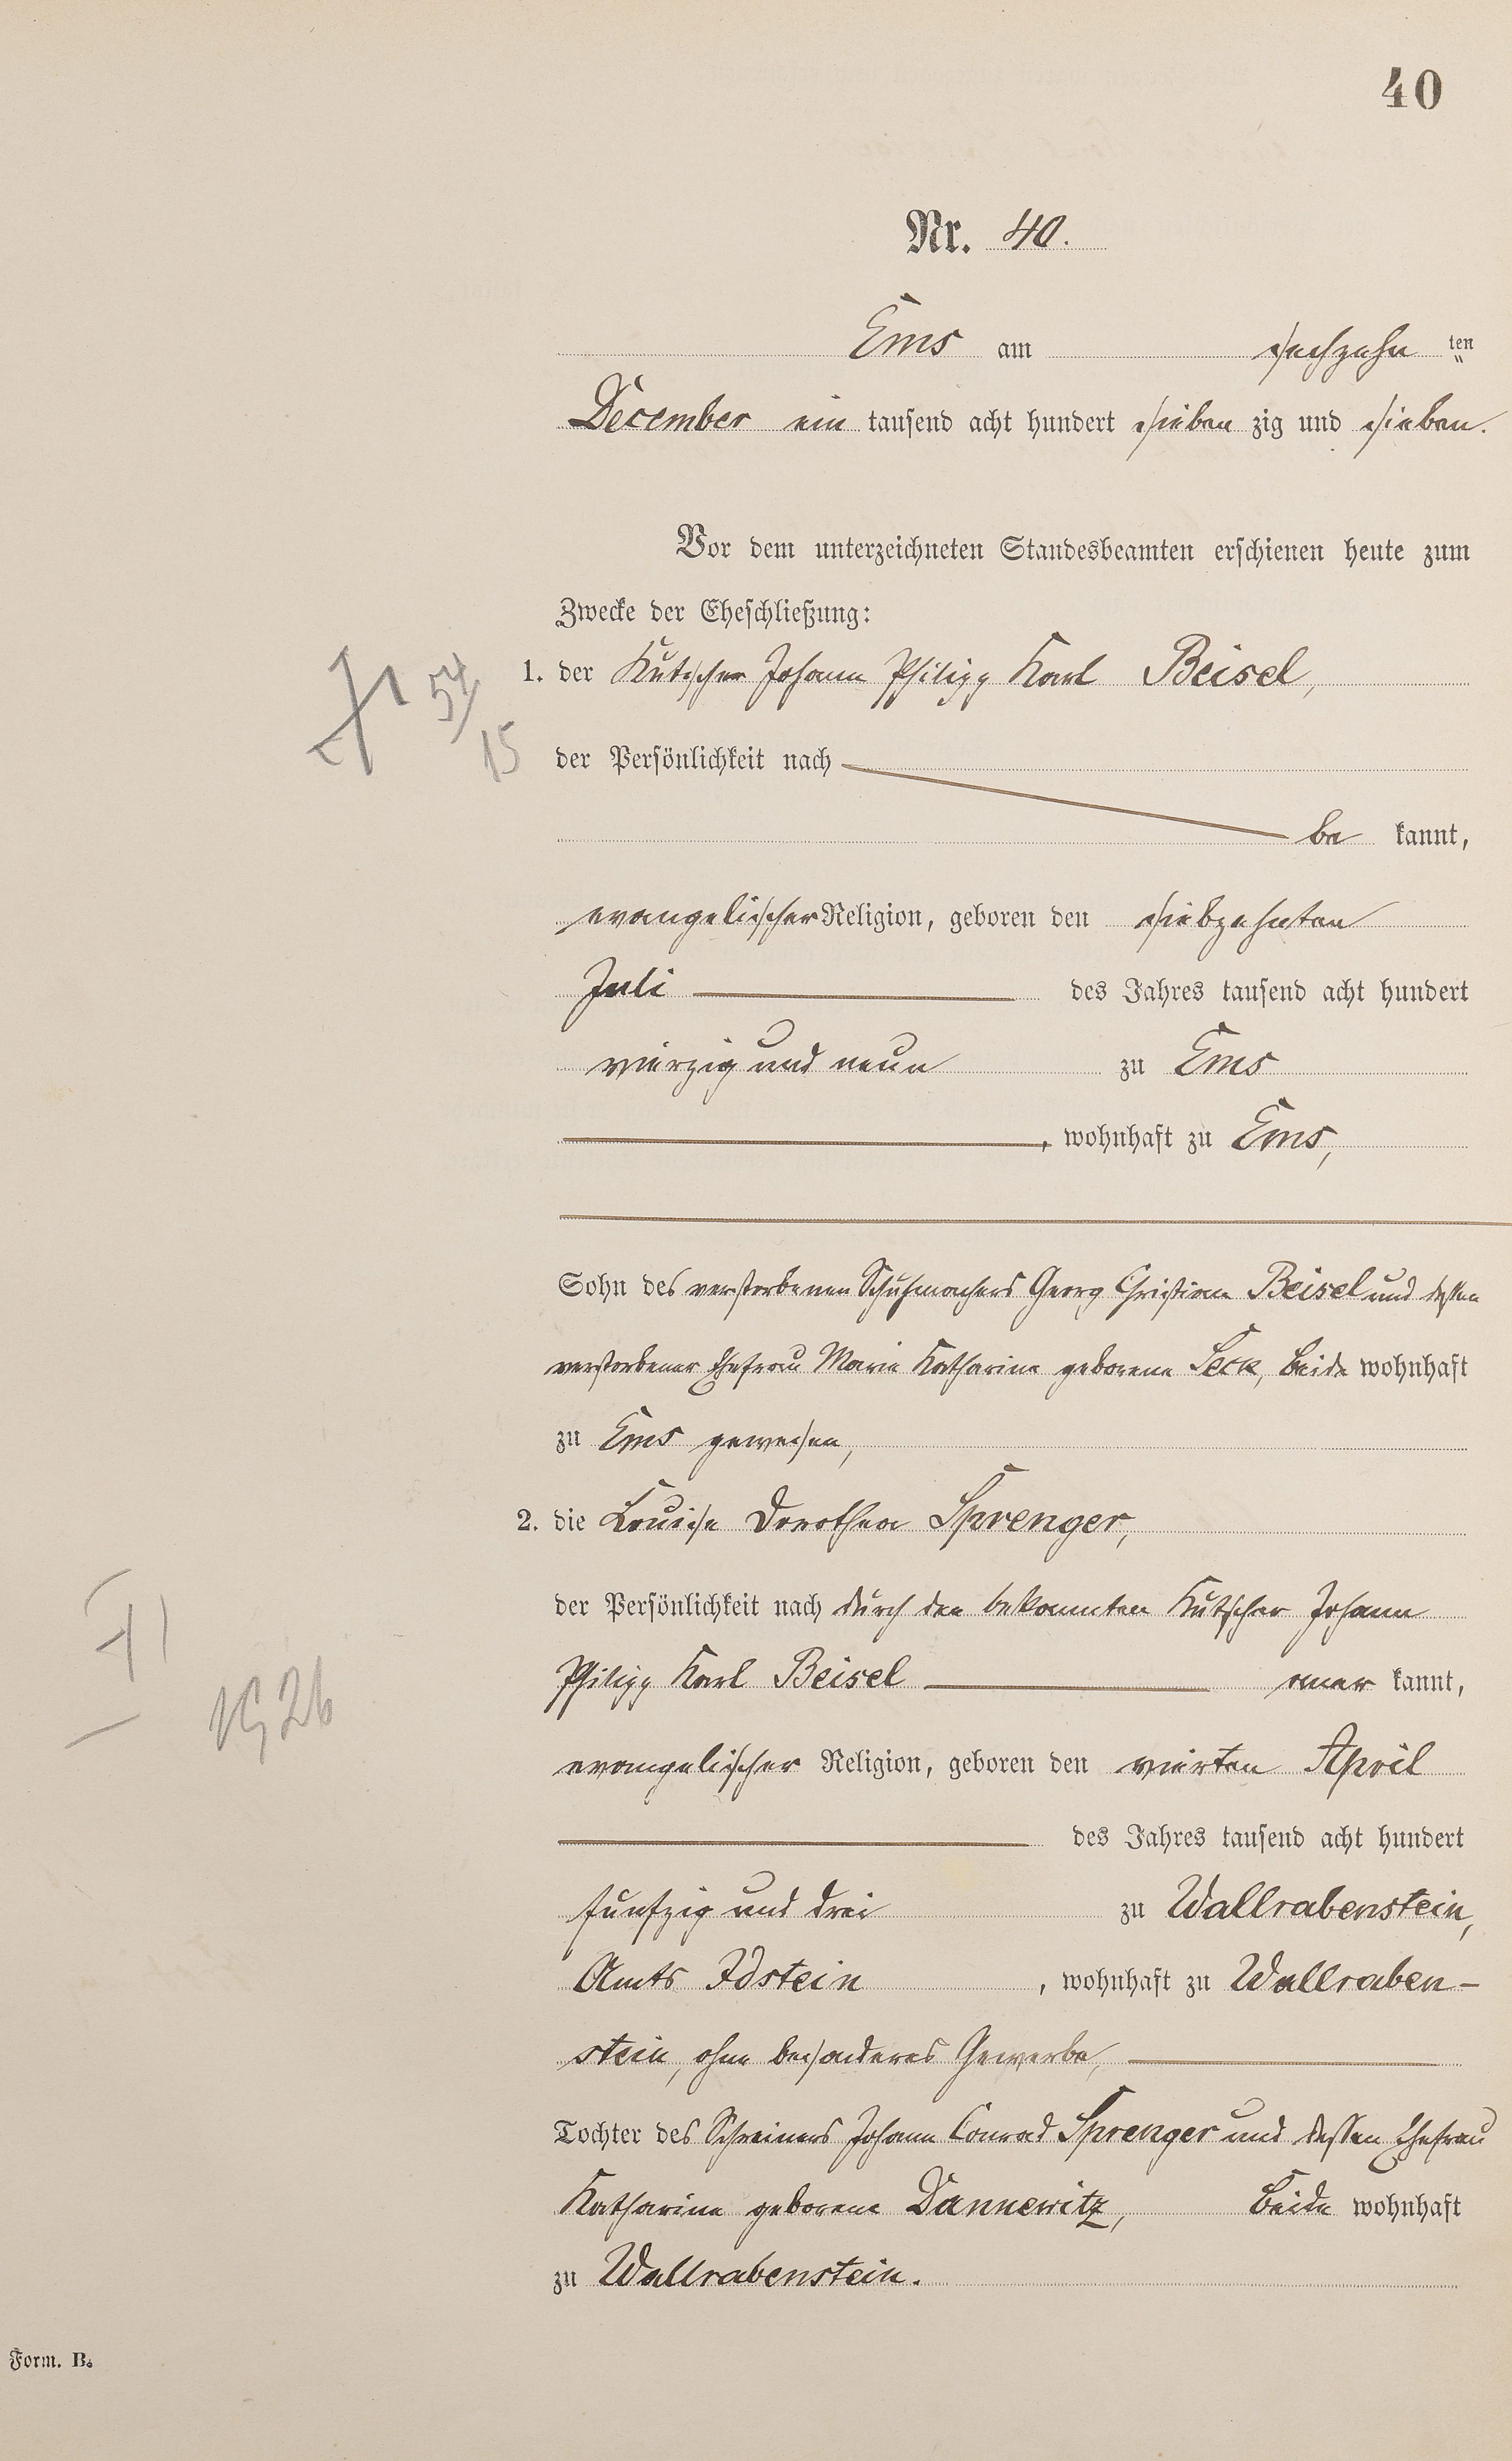 40
Nr. 40.
Ems am sechzehn ten
December ein tausend acht hundert sieben zig und sieben.
Vor dem unterzeichneten Standesbeamten erschienen heute zum
Zwecke der Eheschließung:
1. der Kutscher Johann Philipp Karl Beisel,
54/15
der Persönlichkeit nach
be kannt,
evangelischer Religion, geboren den siebzehnten
Juli des Jahres tausend acht hundert
vierzig und neun zu Ems
, wohnhaft zu Ems,
Sohn des verstorbenen Schuhmachers Georg Christian Beisel und dessen
verstorbener Ehefrau Marie Katharine geborene Seck, beide wohnhaft
zu Ems gewesen,
2. die Louise Dorothea Sprenger,
der Persönlichkeit nach durch den bekannten Kutscher Johann
Philipp Karl Beisel aner kannt,
evangelischer Religion, geboren den vierten April
des Jahres tausend acht hundert
fünfzig und drei zu Wallrabenstein,
Amts Idstein , wohnhaft zu Wallraben-
stein, ohne besonderes Gewerbe,
Tochter des Schreiners Johann Conrad Sprenger und dessen Ehefrau
Katharine geborene Dannewitz, beide wohnhaft
zu Wallrabenstein.
Form. B.